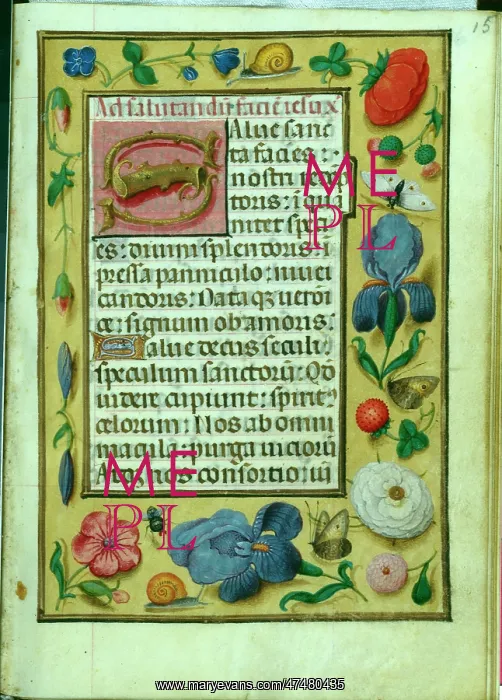 15
Ad salutandū faciē iesu x
Salue sanc
ta facies:
nostri
toris: ī qua
nitet speci
es: diuini splendoris: ī
pressa panniculo: niuei
candoris: Data qz ueroni
ce: signum ob amoris:
Salue decus seculi:
speculum sanctorū: Qd
uidere cupiunt: spirit
celorum: Nos ab omni
macula: purga uiciorū
nos consortio: iū
ME
PL
ME
PL
www.maryevans.com/47480435